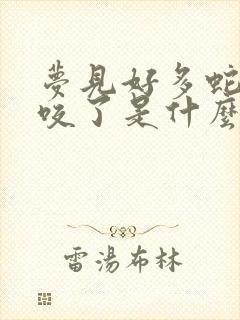 夢見好多蛇
咬了是什麼
雷湯布林